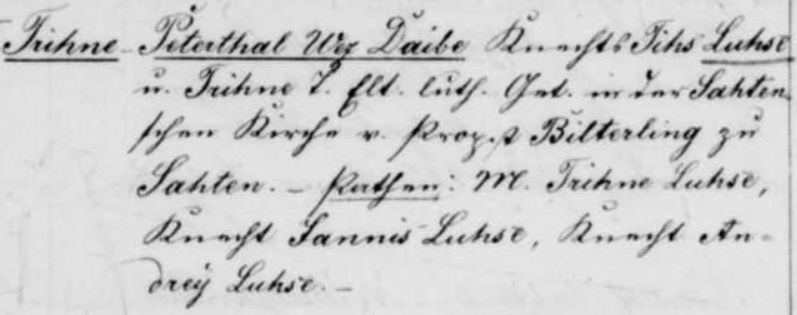 Trihne - Peterthal Wez Daibe Knechts Tihs Luhse
u. Trihne T. Elt. luth. Get. in der Sahten
schen Kirche v. Propst Bilterling zu
Sahten. – Pathen: M. Trihne Luhse,
Knecht Jannis Luhse, Knecht An-
drey Luhse. –